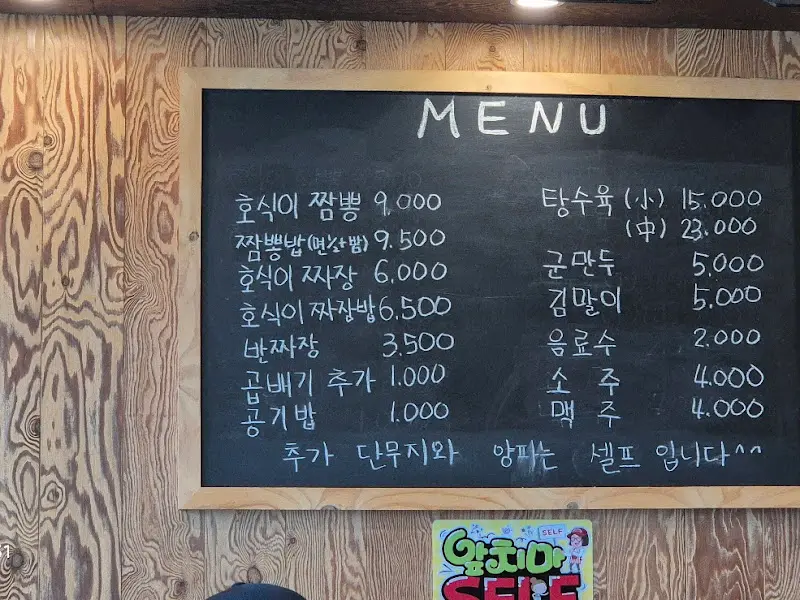 MENU
호식이 짬뽕 9,000
짬뽕밥(면½+밥) 9.500
호식이 짜장 6.000
호식이 짜장밥 6,500
반짜장 3,500
곱배기 추가 1.000
공기밥 1.000
탕수육 (小) 15.000
(中) 23.000
군만두 5.000
김말이 5.000
음료수 2.000
소 주 4.000
맥 주 4.000
추가 단무지와 양파는 셀프 입니다^^
SELF
앞치마
SELF